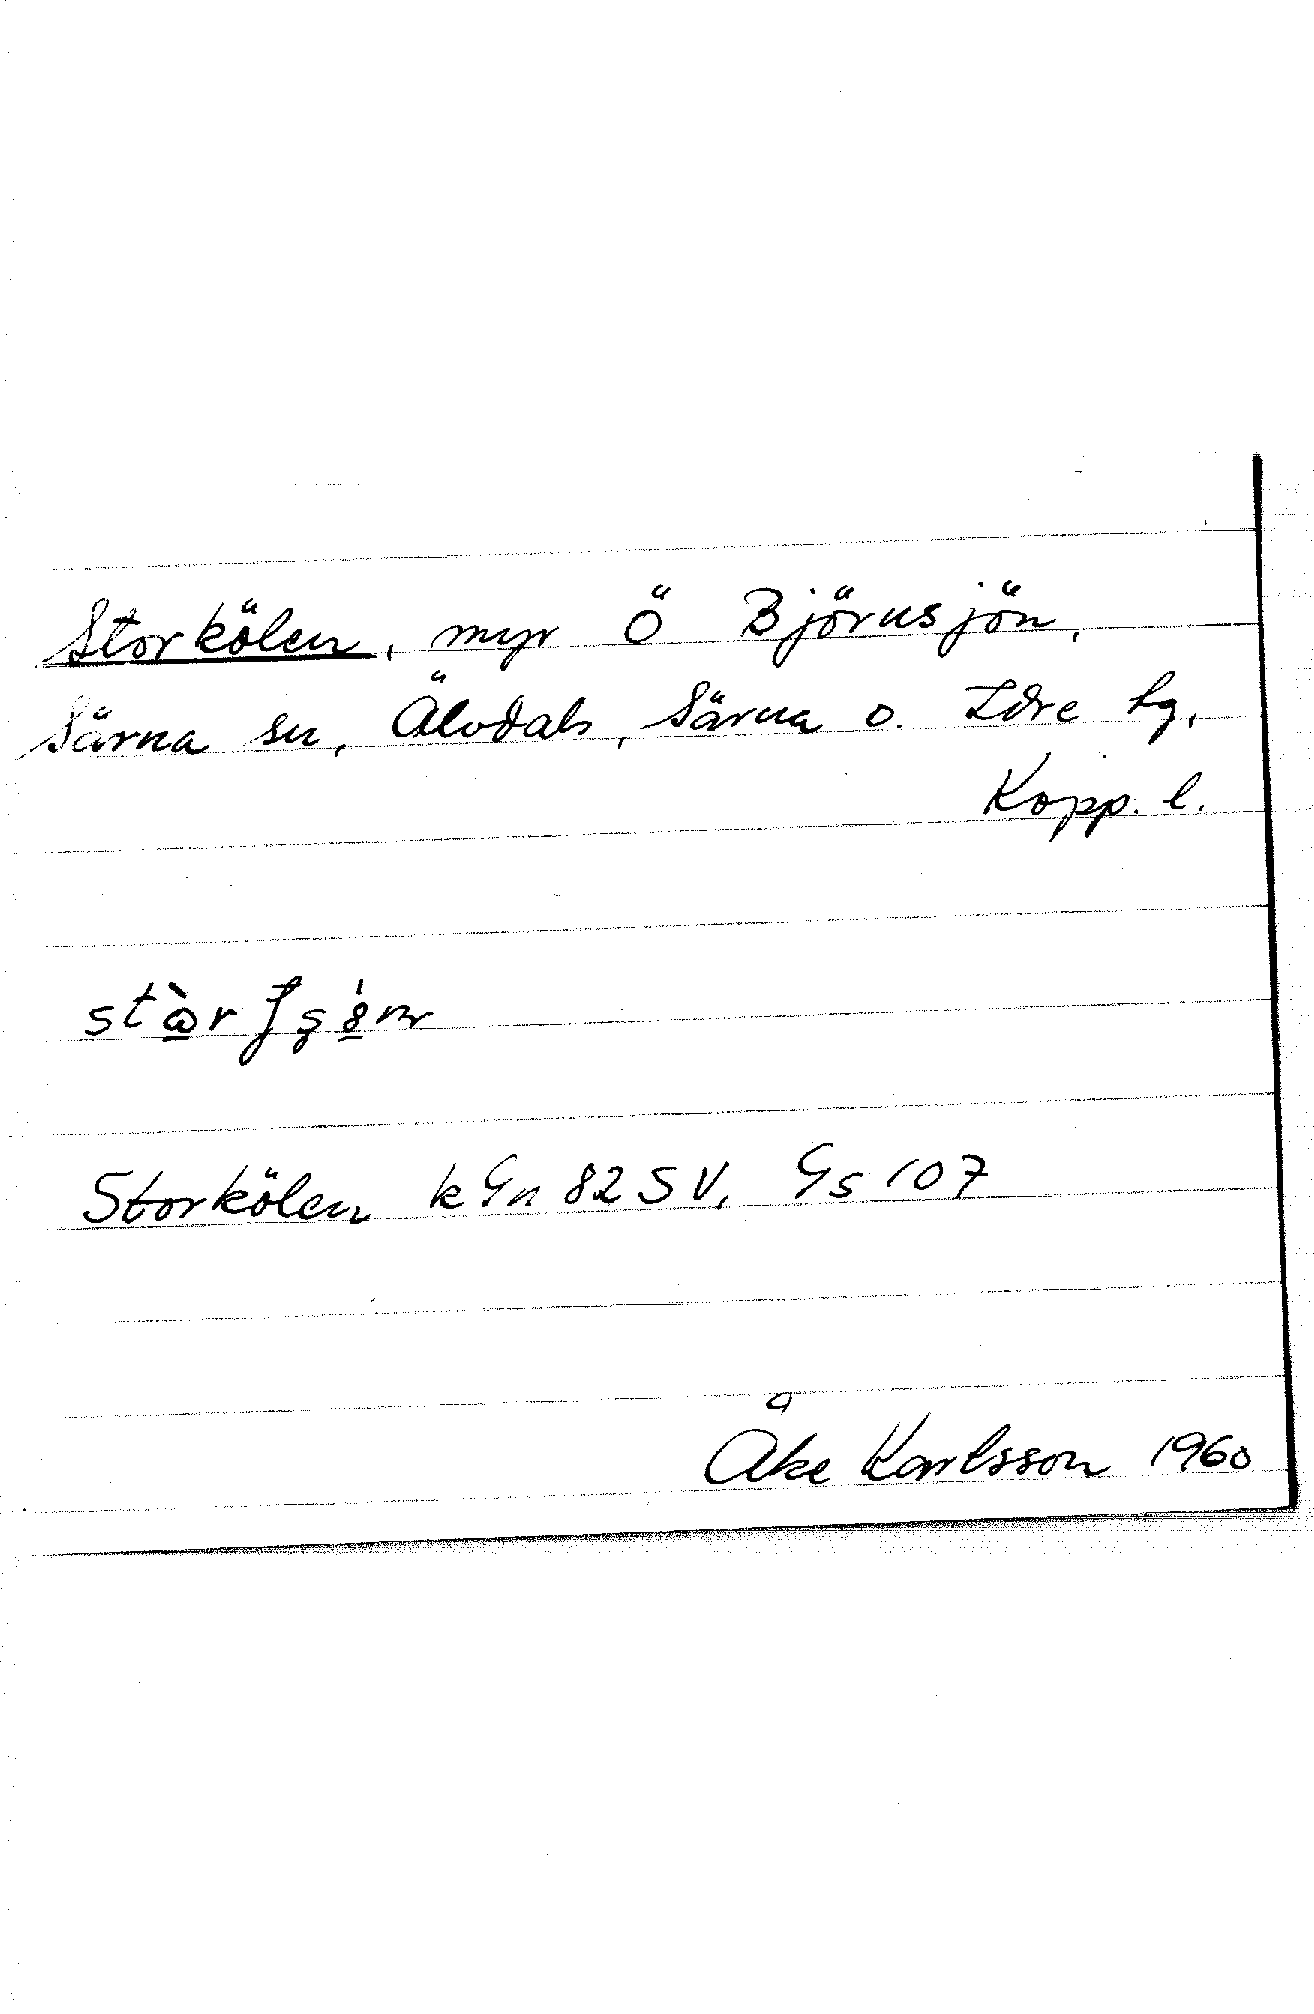 Storkölen, myr Ö Björnsjön,
Särna sn, Älvdals, Särna o. Idre tg,
Kopp. l.
Storkölen kGn 82 SV, Gs 107
Åke Karlsson 1960